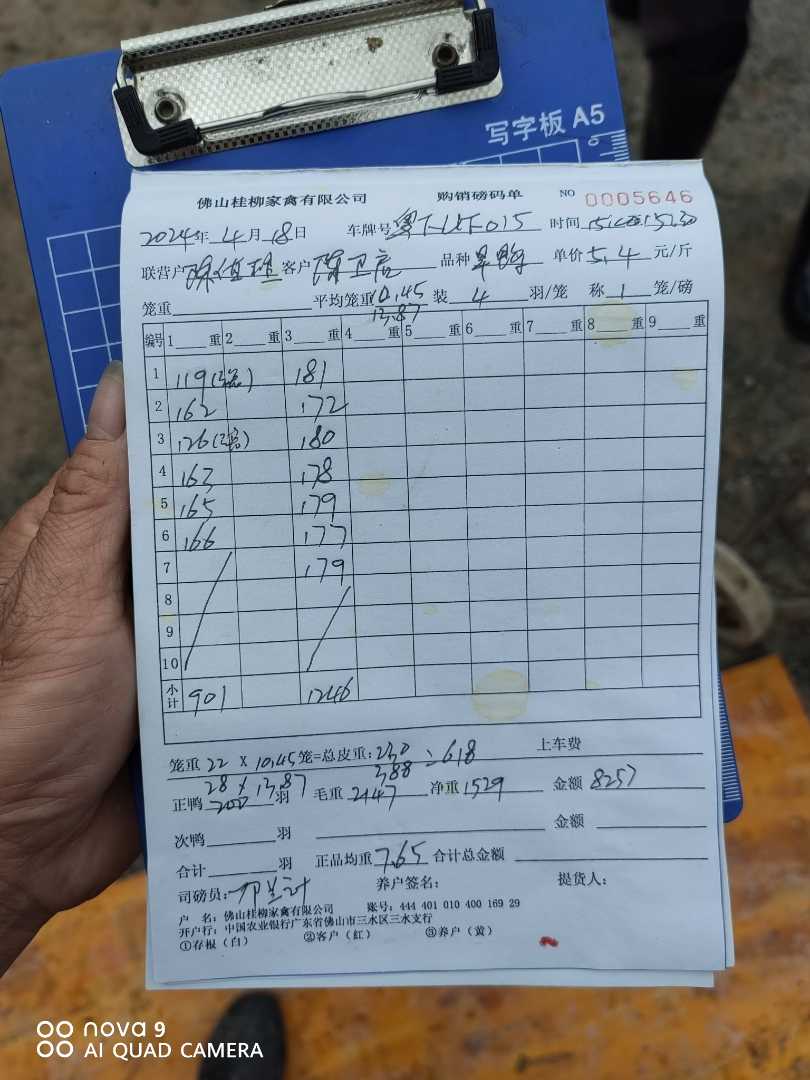 写字板 A5
佛山桂柳家禽有限公司 购销磅码单 NO 0005646
2024年 4月 18日 车牌号 时间
联营户 客户 品种 单价5.4 元/斤
笼重 平均笼重10.45 装 4 羽/笼 称 1 笼/磅
13.87
编号 1 重 2 重 3 重 4 重 5 重 6 重 7 重 8 重 9 重
1 119 181
2 162 172
3 126 180
4 163 178
5 165 179
6 166 177
7 179
8
9
10
小计 901 1246
笼重 22 x 10.45 笼=总皮重: 230 = 618 上车费
28 x 13.87 388
正鸭 200 羽 毛重 2147 净重 1529 金额 8257
次鸭 羽 金额
合计 羽 正品均重 7.65 合计总金额
司磅员: 养户签名: 提货人:
户 名: 佛山桂柳家禽有限公司 账号: 444 401 010 400 169 29
开户行: 中国农业银行广东省佛山市三水区三水支行
①存根(白) ②客户(红) ③养户(黄)
nova 9
AI QUAD CAMERA